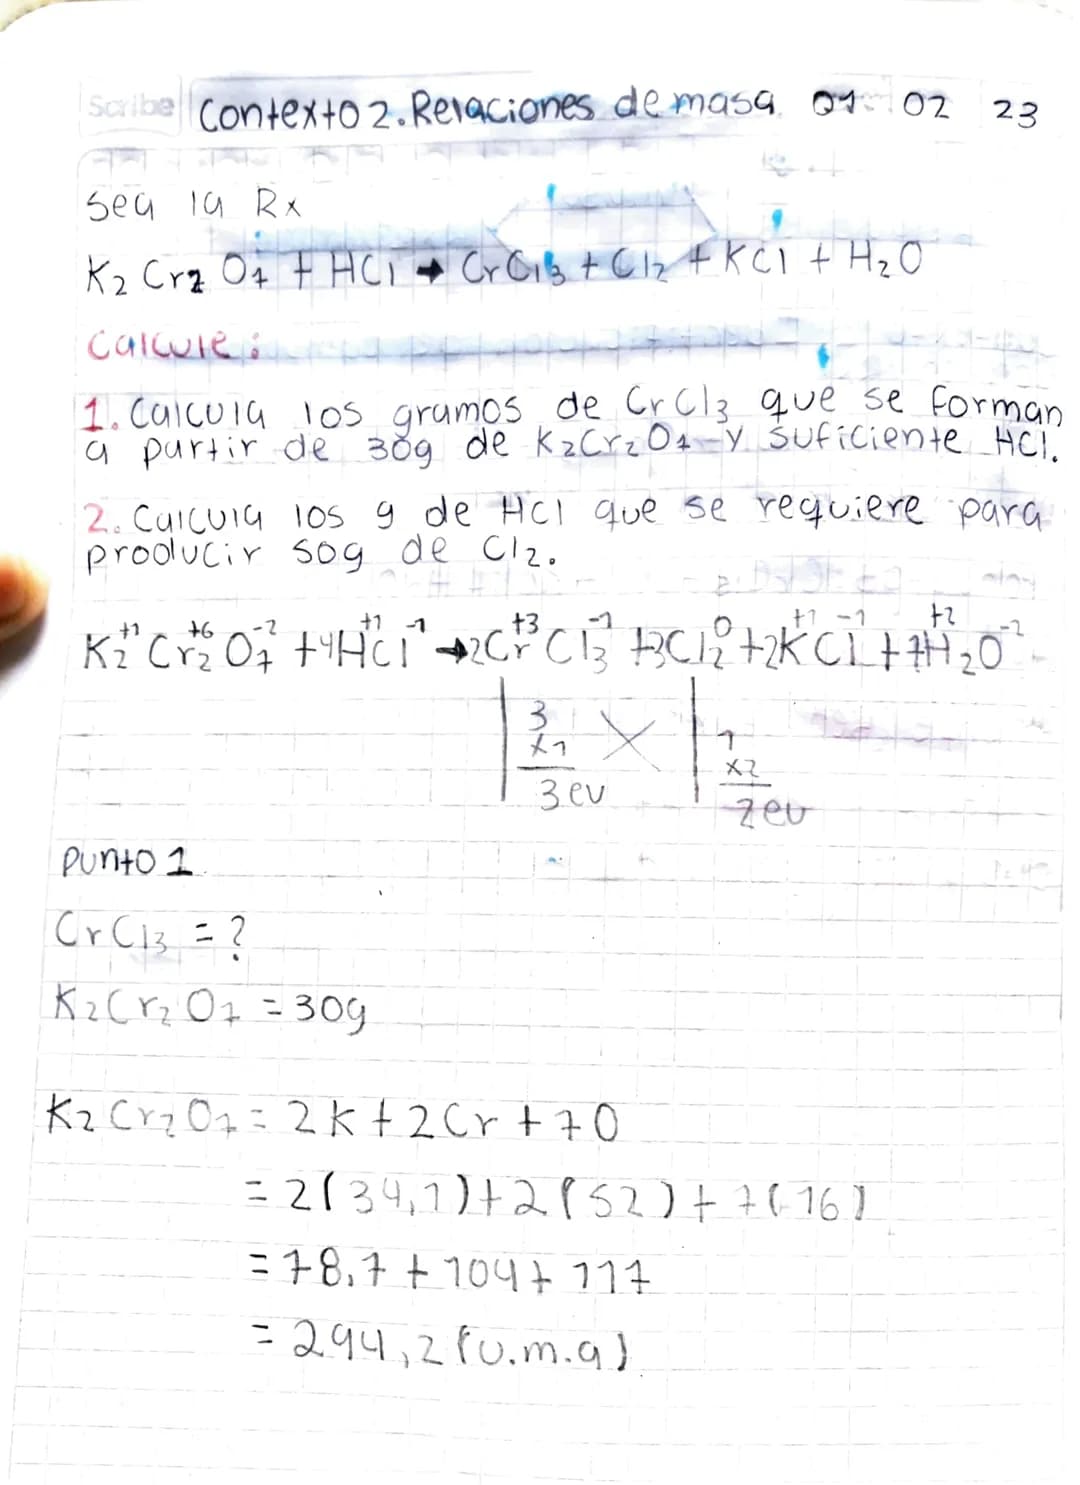 Scribe Contexto 2. Relaciones de masa 01 02 23
Sea la Rx
K2 Cr2 O7 + HCl → CrCl3 + Cl2 + KCl + H2O
Calcule:
1. Calcula los gramos de CrCl3 que se forman
a partir de 30g de K2Cr2O7 y suficiente HCl.
2. Calcula los g de HCl que se requiere para
producir 50g de Cl2.
K2⁺¹ Cr2⁺⁶ O7⁻² + 14H⁺¹Cl⁻¹ → 2Cr⁺³Cl3⁻¹ + 3Cl2⁰ + 2K⁺¹Cl⁻¹ + 7H2⁺²O⁻²
3 1
x1 x2
3 ev 2 ev
Punto 1
CrCl3 = ?
K2Cr2O7 = 30g
K2Cr2O7 = 2K + 2Cr + 7O
= 2(39,1) + 2(52) + 7(16)
= 78,7 + 104 + 117
= 294,2 (u.m.a)